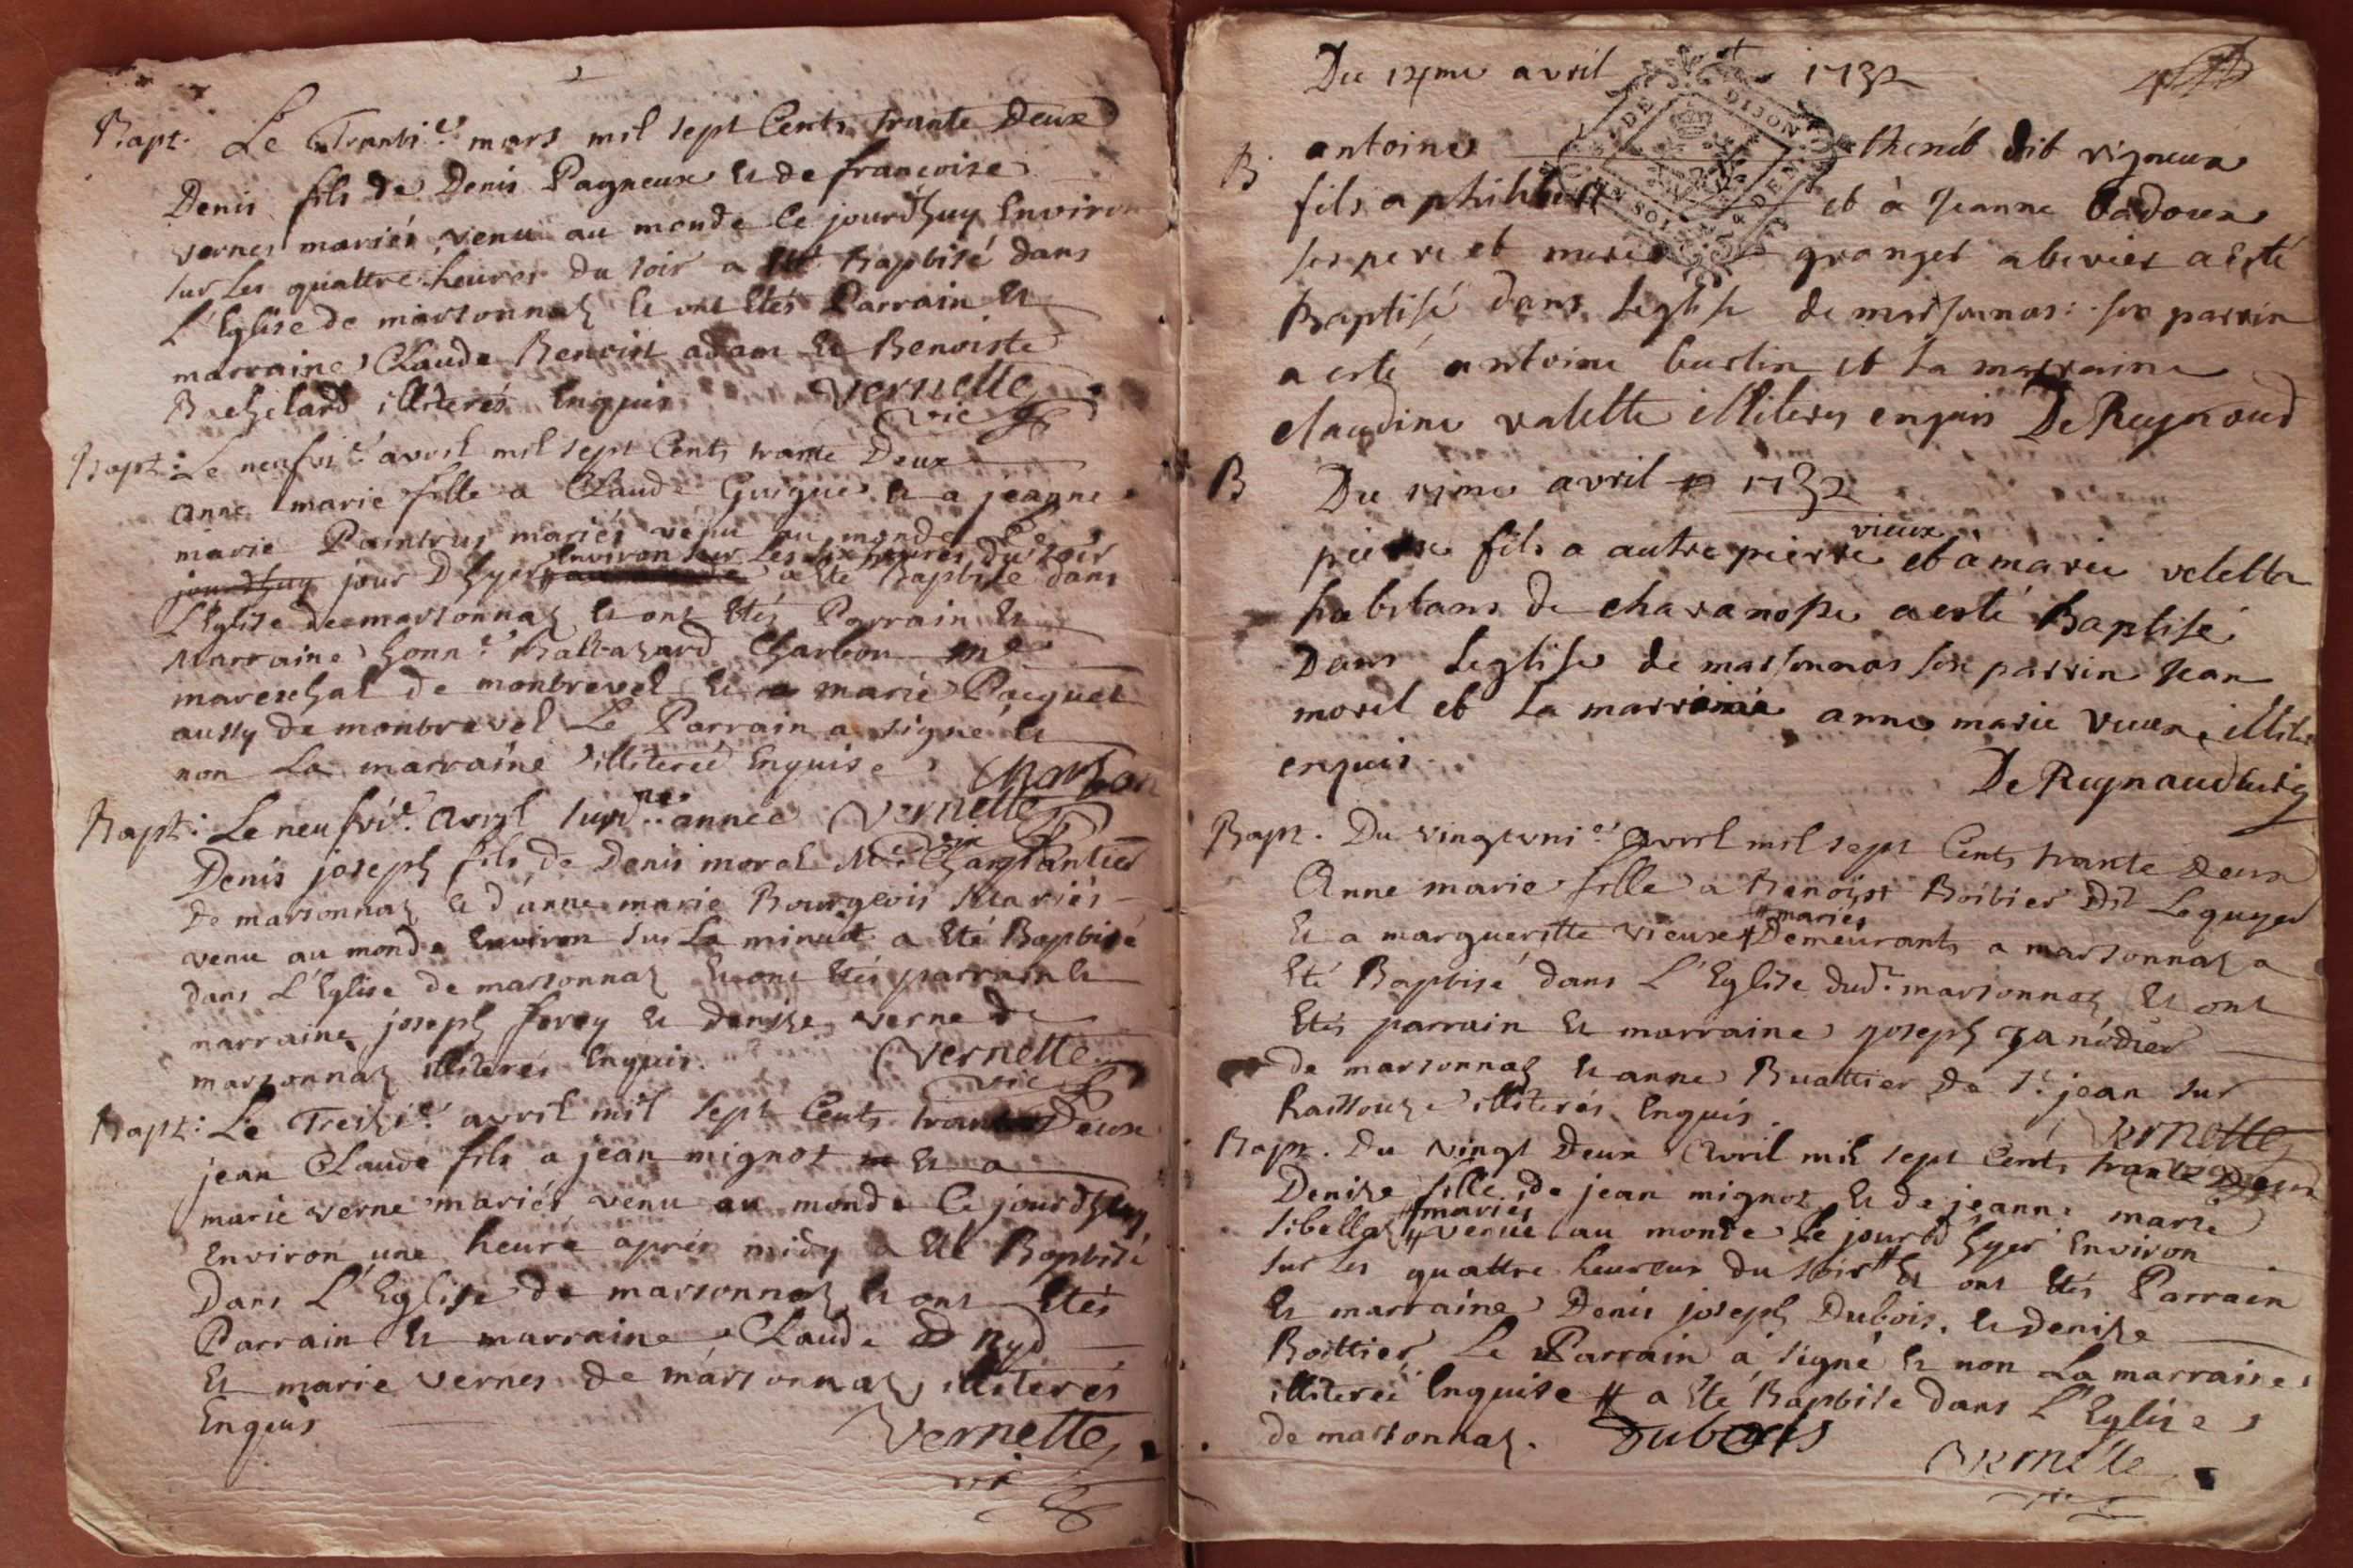 Bapt. Le Tranti.e mars mil sept Cents trante Deux
Denis fils de Denis Pagneux et de francoise
vernes mariés venu au monde ce jourdhuy Environ
sur Les quattre heures du soir a Eté Baptisé dans
L'Eglise de marsonnaz et ont Etés Parrain et
marraine Claude Benoist adam et Benoiste
Bachelard illiterés Enquis Vernette
vic
Bapt: Le neufvi.e avril mil sept Cents trante Deux
anne marie fille a Claude Guigue et a jeanne
marie mariés venu au monde Ce
Environ sur Les six heures du soir
jourdhuy jour Dhyer a Eté Baptisée dans
L'Eglise de marsonnaz et ont Etés Parrain et
Marraine honn.e Baltazard Charbon m.e
mareschal de montrevel et a marie Pacquet
aussy de montrevel Le Parrain a signé et
non La marraine illiterée Enquise Charbon
Bapt: Le neufvi.e avril susd.ne année Vernette
vic
Denis joseph fils de Denis morel M.e Charpantier
De marsonnaz et d'anne marie Bourgeois Mariés
venu au monde Environ sur La minuit a Eté Baptisé
dans L'Eglise de marsonnaz et ont Etés parrain et
marraine joseph ferey et Denise verne de
marsonnaz illiterés Enquis. Vernette
vic
Bapt: Le Treizi.e avril mil sept Cents trante Deux
jean Claude fils a jean mignot et a
marie verne mariés venu au monde Ce jourdhuy
Environ une heure aprés midy a Eté Baptisé
Dans L'Eglise de marsonnaz et ont Etés
Parrain et marraine Claude Nyd
Et marie Vernes de marsonnaz illiterés
Enquis
Vernette
vic
Du avril 1732
B antoine thenet dit vigneux
fils a philibert et à Jeanne badoux
ses pere et mere granger a beviez a esté
Baptisé dans leglise de marsonnas: son parrin
a esté antoine burlin et La marraine
claudine valette illiteres enquis De Reynaud
B Du avril 1732
vieux
pierre fils a autre pierre et à marie velette
habitans de chavanosse a esté Baptisé
Dans leglise de marsonnas son parrin Jean
morel et La marraine anne marie vieux illite
enquis
De Reynaud curé
Bapt. Du vingtuni.e avril mil sept Cents trante Deux
Anne marie fille a Benoist Boibier Dit Lequyer
mariés
Et a margueritte vieux Demeurants a marsonnaz a
Eté Baptisé dans L'Eglise dud.t marsonnaz Et ont
Etés parrain Et marraine joseph Janodier
de marsonnaz Et anne Buattier de s.t jean sur
Raissouze illiterés Enquis.
Vernette
Bapt. Du vingt Deux Avril mil sept Cents trante Deux
Denize fille de jean mignot Et de jeanne marie
mariés
sibellaz venue au monde Le jour d'hyer Environ
sur Les quattre heures du soir # Et ont Etés Parrain
Et marraine Denis joseph Dubois. et Denize
Boittier Le Parrain a signé Et non La marraine
illiterée Enquise # a Eté Baptisée dans L'Eglise
de marsonnaz. Dubois
Vernette
vic